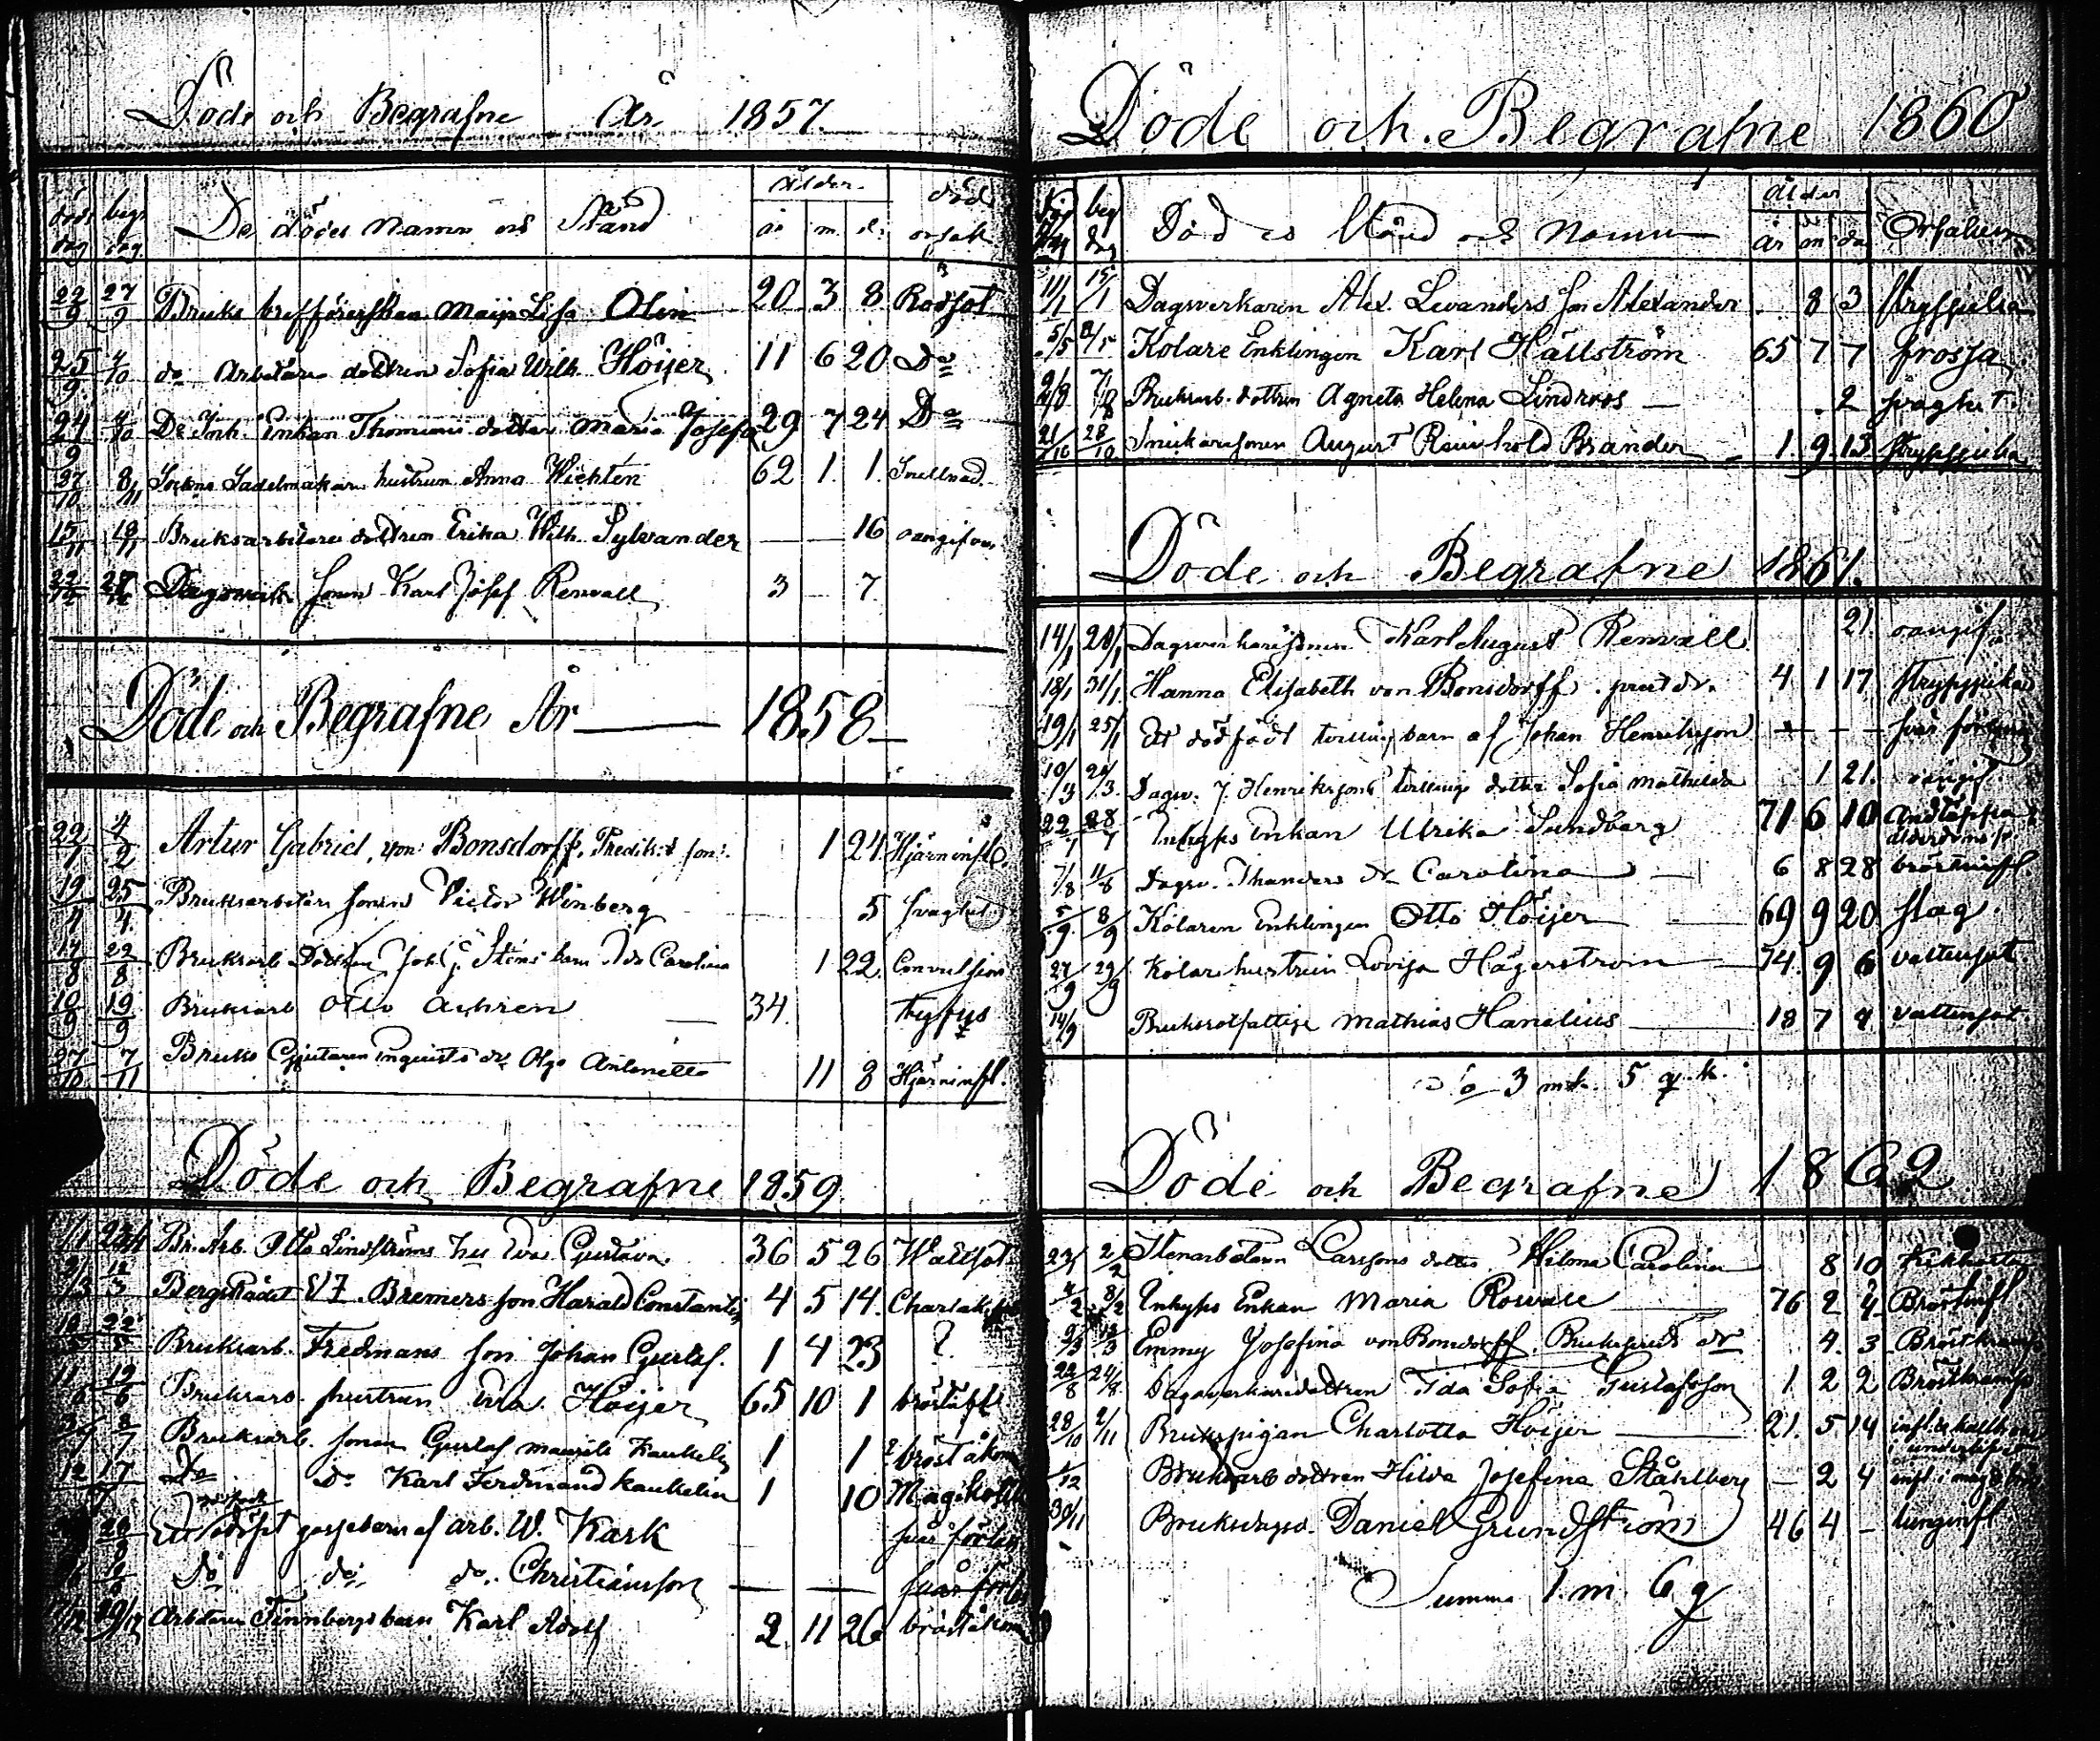 Döde och Begrafne År 1857
döds dag begr dag De dödes namn och Stånd Ålder år m. d. död orsak
22/9 27/9 Bruks Maja Lisa Olin 20 3 8 Rödsot
25/9 4/10 do Arbetare dottren Sofia Wilh. Höijer 11 6 20 Do
24/9 4/10 Do Inh. Enkan dotter Maria Josefa 29 7 24 Do
27/10 8/11 Sockne Sadelmakare hustrun Anna Wichtén 62 1. 1.
15/11 18/11 Bruksarbetare dottren Erika Wilh. Sylvander — — 16 oangifven
22/12 28/12 Dagsverk. Sonen Karl Josef Renvall 3 — 7
Döde och Begrafne År — 1858 —
22/1 4/2 Artur Gabriel, von Bonsdorff, Predik:s son. 1 24 Hjärninfl.
19/4 25/4 Bruksarbetare sonen Victor Winberg 5 svaghet
17/8 22/8 Bruksarb Dottren Joh. Sténs barn Ida Carolina 1 22 Convulsion
10/9 19/9 Bruksarb Otto Achren — 34. tyfus
27/10 7/11 Bruks Gjutaren Engvists dr Olga Antonetta 11 8 Hjärninfl.
Döde och Begrafne 1859
Br. Arb. Otto Lindströms hus Eva Gustava 36 5 26 Wattsot
12/3 Bergsrådet V. F. Bremers son Harald Constantin 4 5 14.
22/5 Bruksarb. Fredmans son Johan Gustaf. 1 4 23 ?
12/6 Bruksarb. hustrun Eva Höijer 65 10 1
8/7 Bruksarb. sonen Gustaf Maurits Kaukelin 1 1 bröståkom
12/7 17/7 Do Do Karl Ferdinand Kaukelin 1 10
Ett gossebarn af arb. W. Kark svår förlos
Do do do. Christiansson — — svår förlos
29/12 Arbetaren Finnbergs barn Karl Adolf 2 11 26 bröståkom
Döde och Begrafne 1860
dag beg dag Död es Stånd och Namn Ålder år m da Orsaken
11/1 15/1 Dagsverkaren Alex. Levanders son Alexander . 8 3 strypsjuka
5/5 8/5 Kolare Enklingen Karl Hällström 65 7 7 frossa
2/8 7/8 Bruksarb. dottren Agneta Helena Lindroos — . 2 svaghet
21/10 28/10 Snickaresonen August Reinhold Brander — 1 9 13 strypsjuka
Döde och Begrafne 1861.
14/1 20/1 Dagsverkaresonen Karl August Renvall 21. oangif.
18/1 31/1 Hanna Elisabeth von Bonsdorff. prest dr. 4 1 17 strypsjuka
19/1 25/1 Ett dödfödt tvilling barn af Johan Henriksson — — — svår förlossn
10/3 24/3. Dagsv. J. Henrikssons tvillings dotter Sofia Mathilda 1 21. oangif
22/7 28/7 Inhyses Enkan Ulrika Sundberg 71 6 10 Andtäppa & ålderdoms
7/8 11/8 Dagsv. Thanders dr Carolina — 6 8 28 bröstinfl.
5/9 8/9 Kolaren Enklingen Otto Höijer — 69 9 20 slag.
27/9 29/9 Kolare hustrun Lovisa Hägerström — 74. 9 6 vattusot
14/9 Bruksrotfattige Mathias Hanelius — 18 7 4 vattusot.
S:a 3 mk. 5 q. k.
Döde och Begrafne 1862
23/1 2/2 Stenarbetaren Carssons dotter Hilma Carolina 8 10 Kikhosta
4/2 8/2 Inhyses Enkan Maria Rosvall — 76 2 4 Bröstinfl.
9/3 13/3 Emmy Josefina von Bonsdorff. Brukspred. dr 4. 3 Bröstkramp
22/8 24/8. Dagsverkaredottren Ida Sofia Gustafsson 1 2 2 Bröstkramp
28/10 2/11 Brukspigan Charlotta Höijer — 21. 5 14 infl. & kallbrand i underlifvet
1/12 Bruksarb dottren Hilda Josefina Ståhlberg — 2 4
30/11 Bruksdagsv. Daniel Grundström 46 4 — lunginfl
Summa 1. m. 6 q